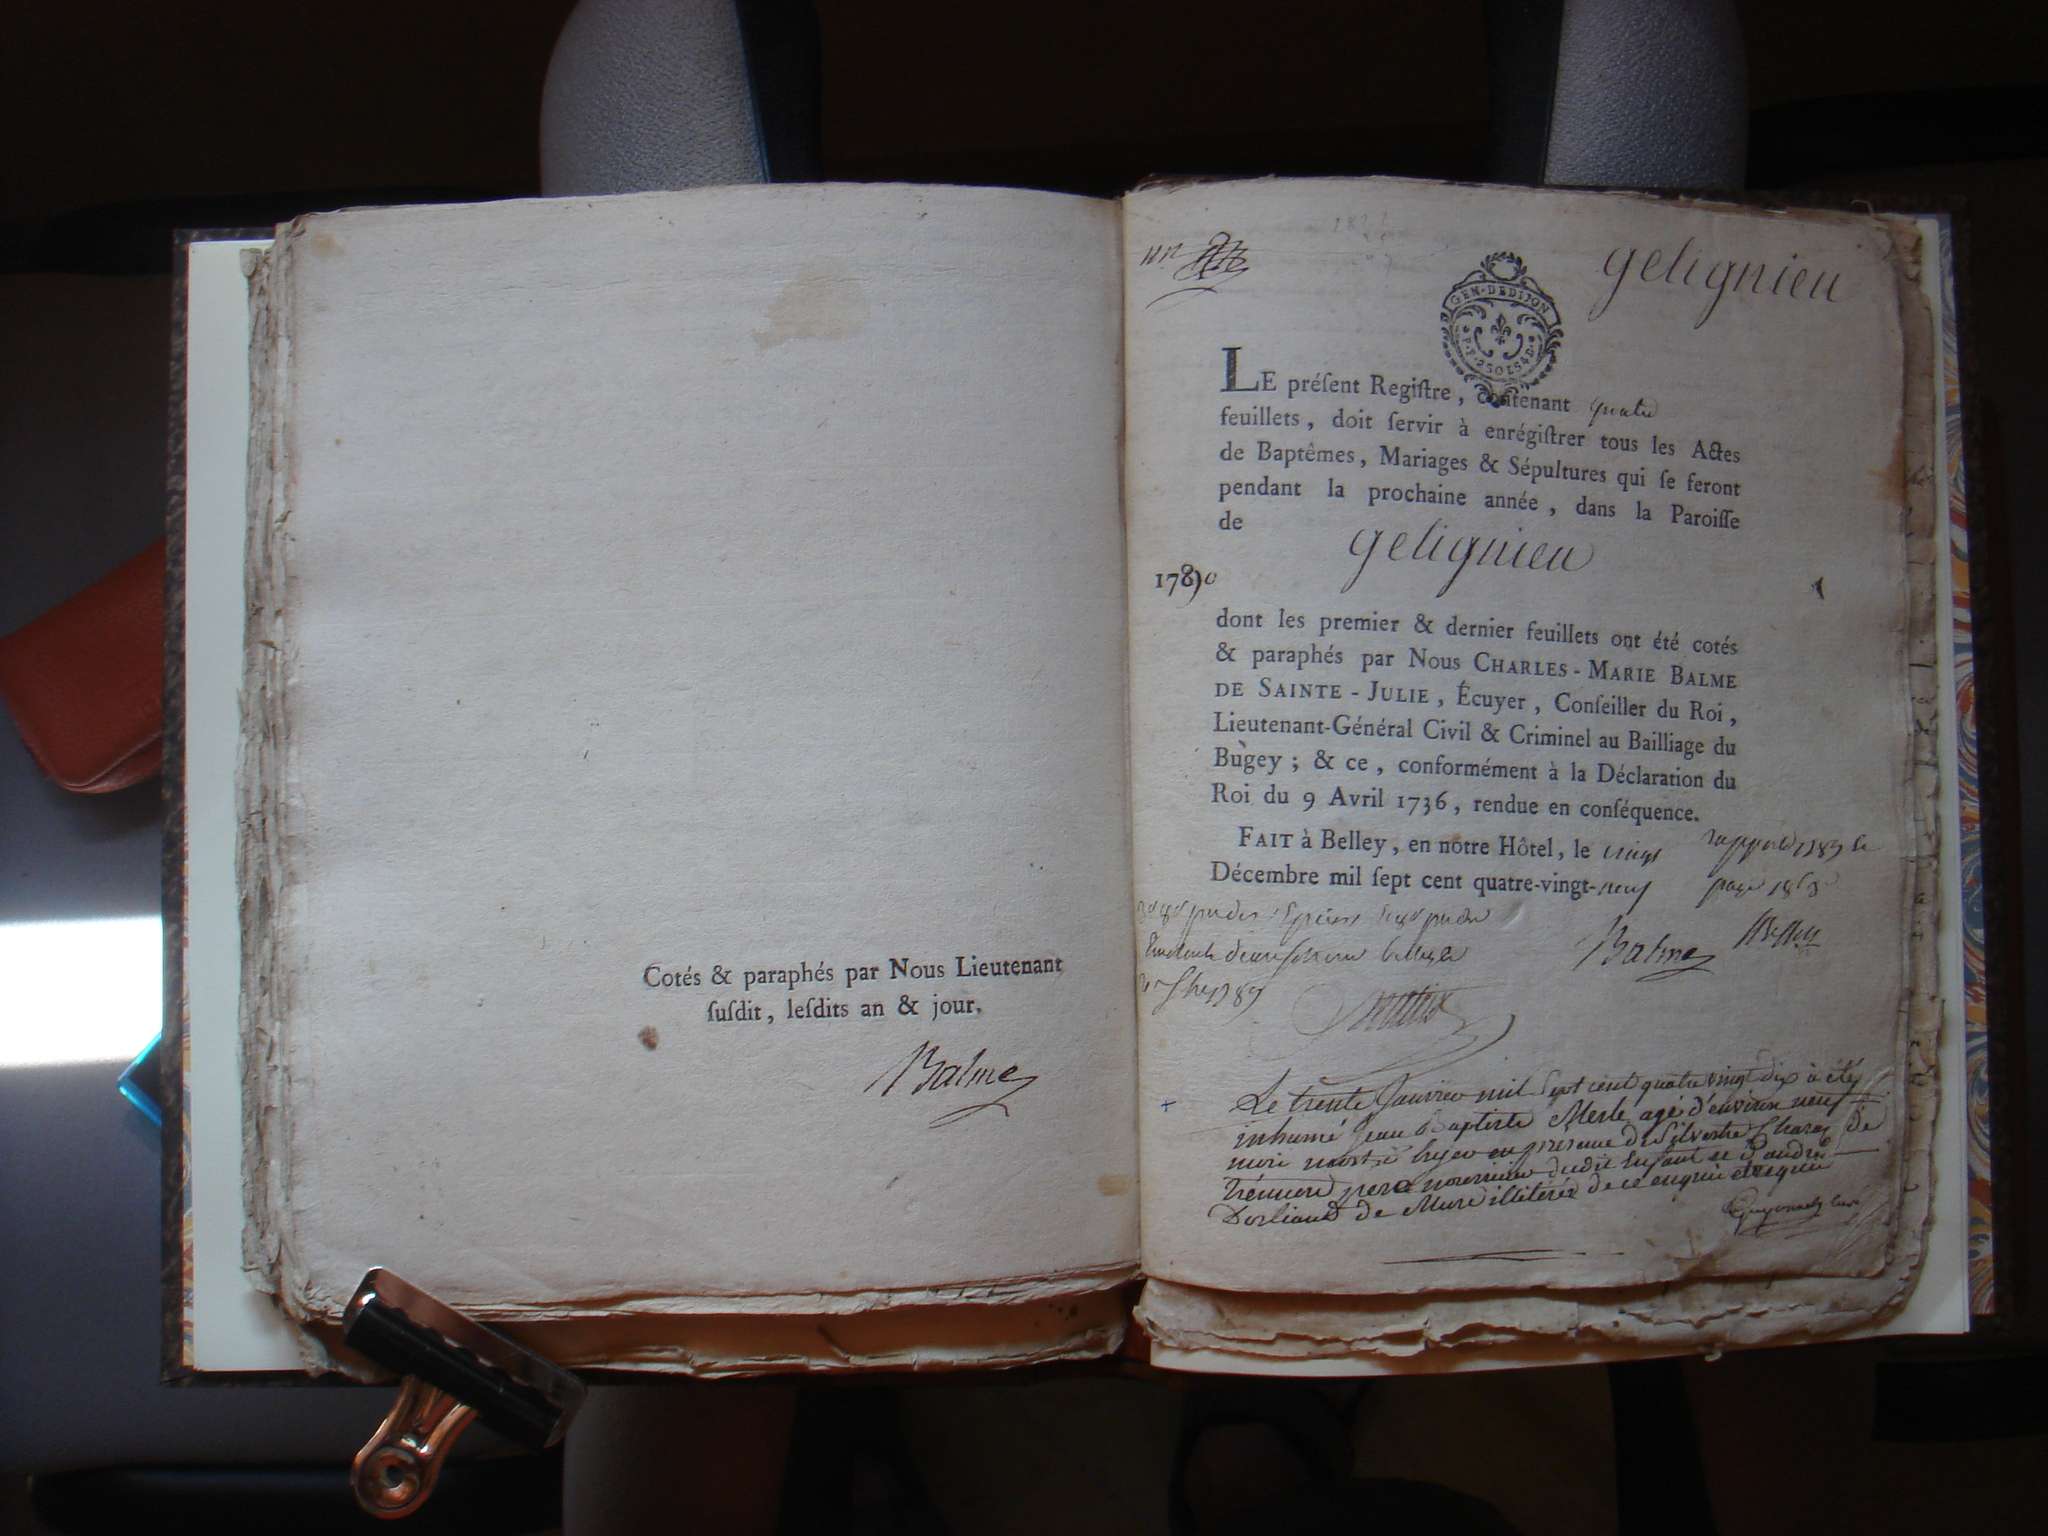 Cotés & paraphés par Nous Lieutenant
ſuſdit, leſdits an & jour.
Balme
gelignieu
GEN. DE DIJON
LE préſent Regiſtre, contenant quatre
feuillets, doit ſervir à enrégiſtrer tous les Actes
de Baptêmes, Mariages & Sépultures qui ſe feront
pendant la prochaine année, dans la Paroiſſe
de gelignieu
1790
dont les premier & dernier feuillets ont été cotés
& paraphés par Nous CHARLES-MARIE BALME
DE SAINTE-JULIE, Écuyer, Conſeiller du Roi,
Lieutenant-Général Civil & Criminel au Bailliage du
Bugey; & ce, conformément à la Déclaration du
Roi du 9 Avril 1736, rendue en conſéquence.
FAIT à Belley, en notre Hôtel, le vingt
Décembre mil ſept cent quatre-vingt-neuf
Balme
Le trente Janvier mil Sept cent quatre vingt dix à été
inhumé jean Baptiste Merle agé d'environ neuf
mois mort à en présence de Silvestre de
pere nourricier dudit Enfant et d'andré
de Mure illiterés de ce enquis et requis
Guyonnet curé